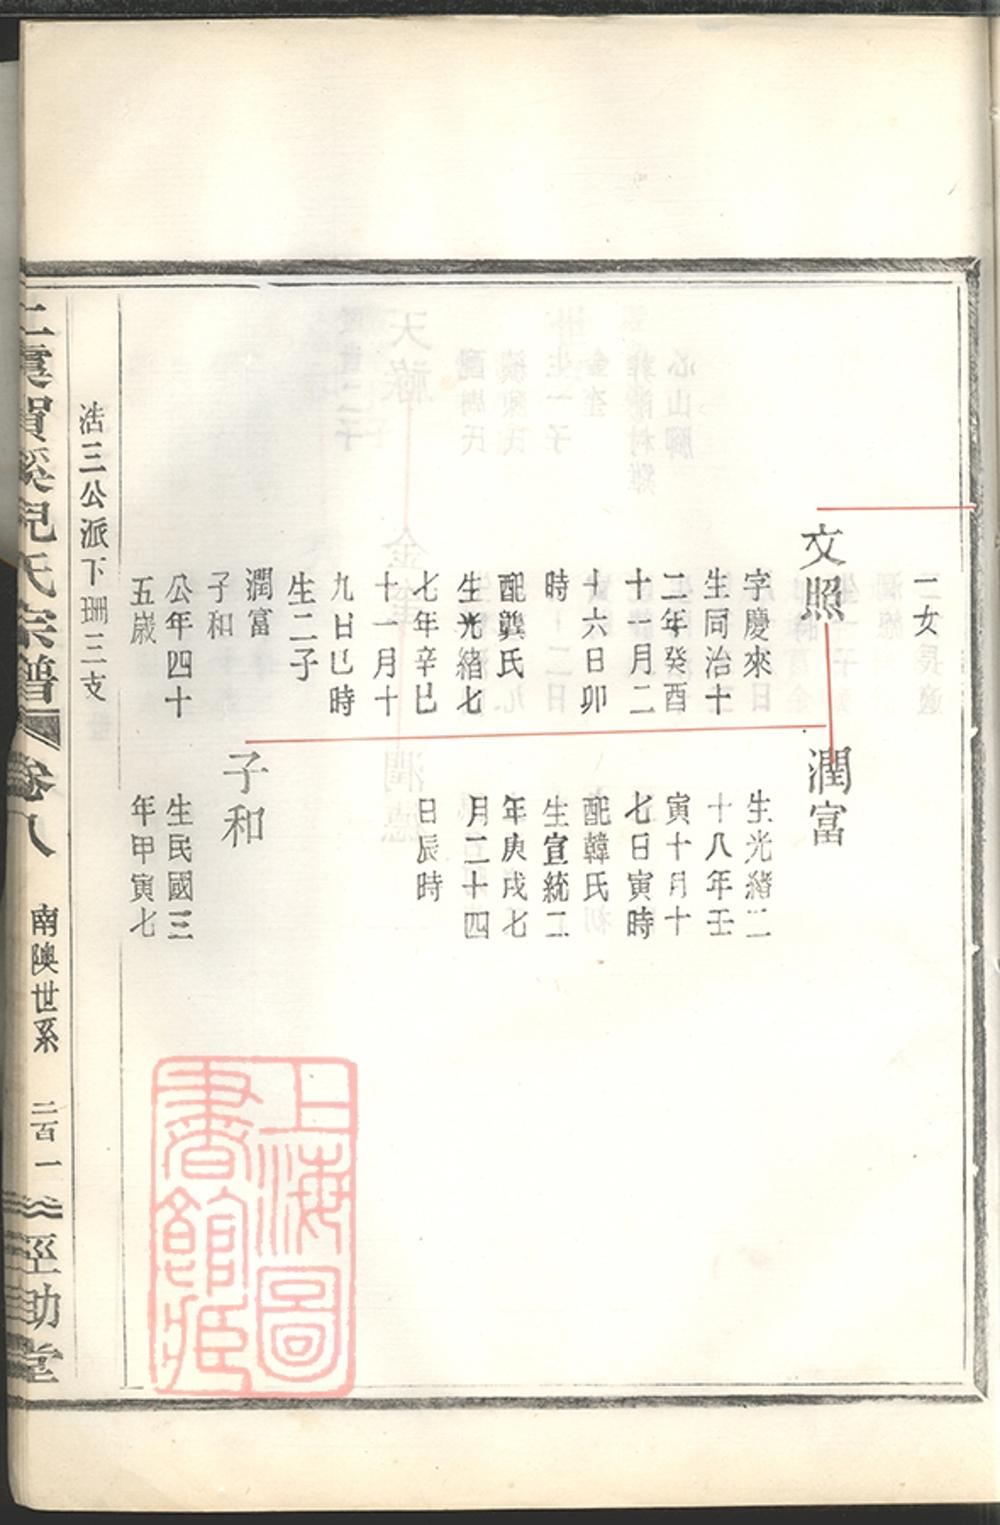 二女
文照
字慶來
生同治十
二年癸酉
十一月二
十六日卯
時
配龔氏
生光緒七
七年辛巳
十一月十
九日巳時
生二子
潤富
子和
公年四十
五歲
潤富
生光緒二
十八年壬
寅十月十
七日寅時
配韓氏
生宣統二
年庚戌七
月二十四
日辰時
子和
生民國三
年甲寅七
浩三公派下珊三支
上虞賀溪兒氏宗譜
卷八
南陳世系
二百一
經助堂
上海圖
書館藏